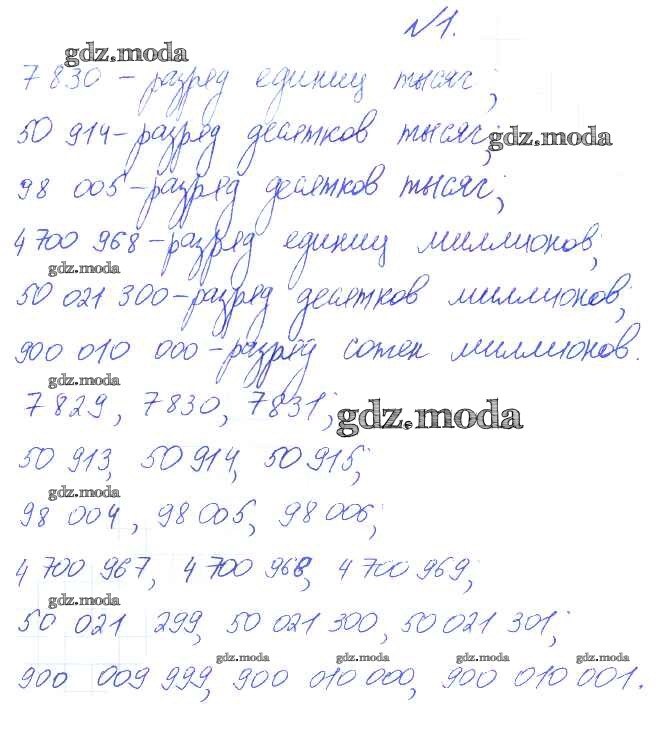 №1.
gdz.moda
7 830 – разряд единиц тысяч;
50 914 – разряд десятков тысяч;
gdz.moda
98 005 – разряд десятков тысяч;
4 700 968 – разряд единиц миллионов;
gdz.moda
50 021 300 – разряд десятков миллионов;
900 010 000 – разряд сотен миллионов.
gdz.moda
7 829, 7 830, 7 831;
gdz.moda
50 913, 50 914, 50 915;
gdz.moda
98 004, 98 005, 98 006;
4 700 967, 4 700 968, 4 700 969;
gdz.moda
50 021 299, 50 021 300, 50 021 301;
gdz.moda gdz.moda gdz.moda gdz.moda
900 009 999, 900 010 000, 900 010 001.